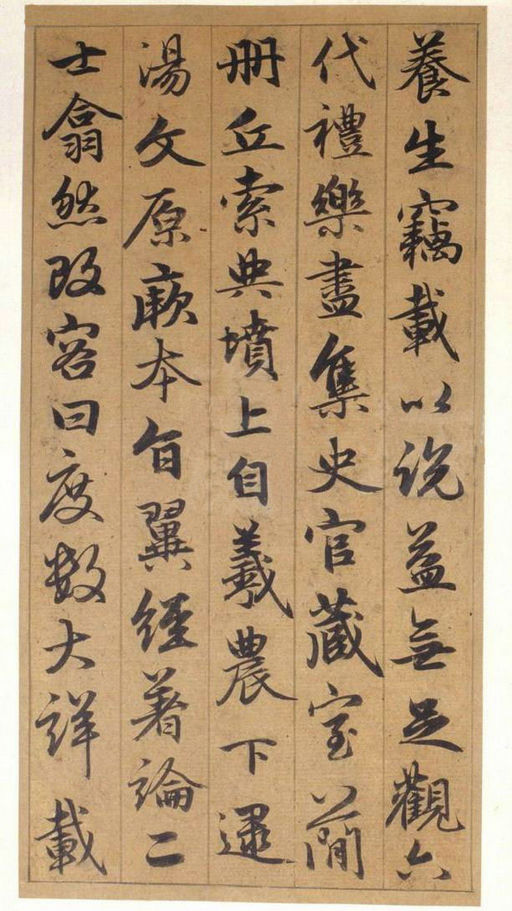 養生竊載以説益無足觀六
代禮樂盡集史官藏室簡
冊丘索典墳上自羲農下逮
湯文原厥本旨翼經著論二
士翕然改容曰度數大詳載